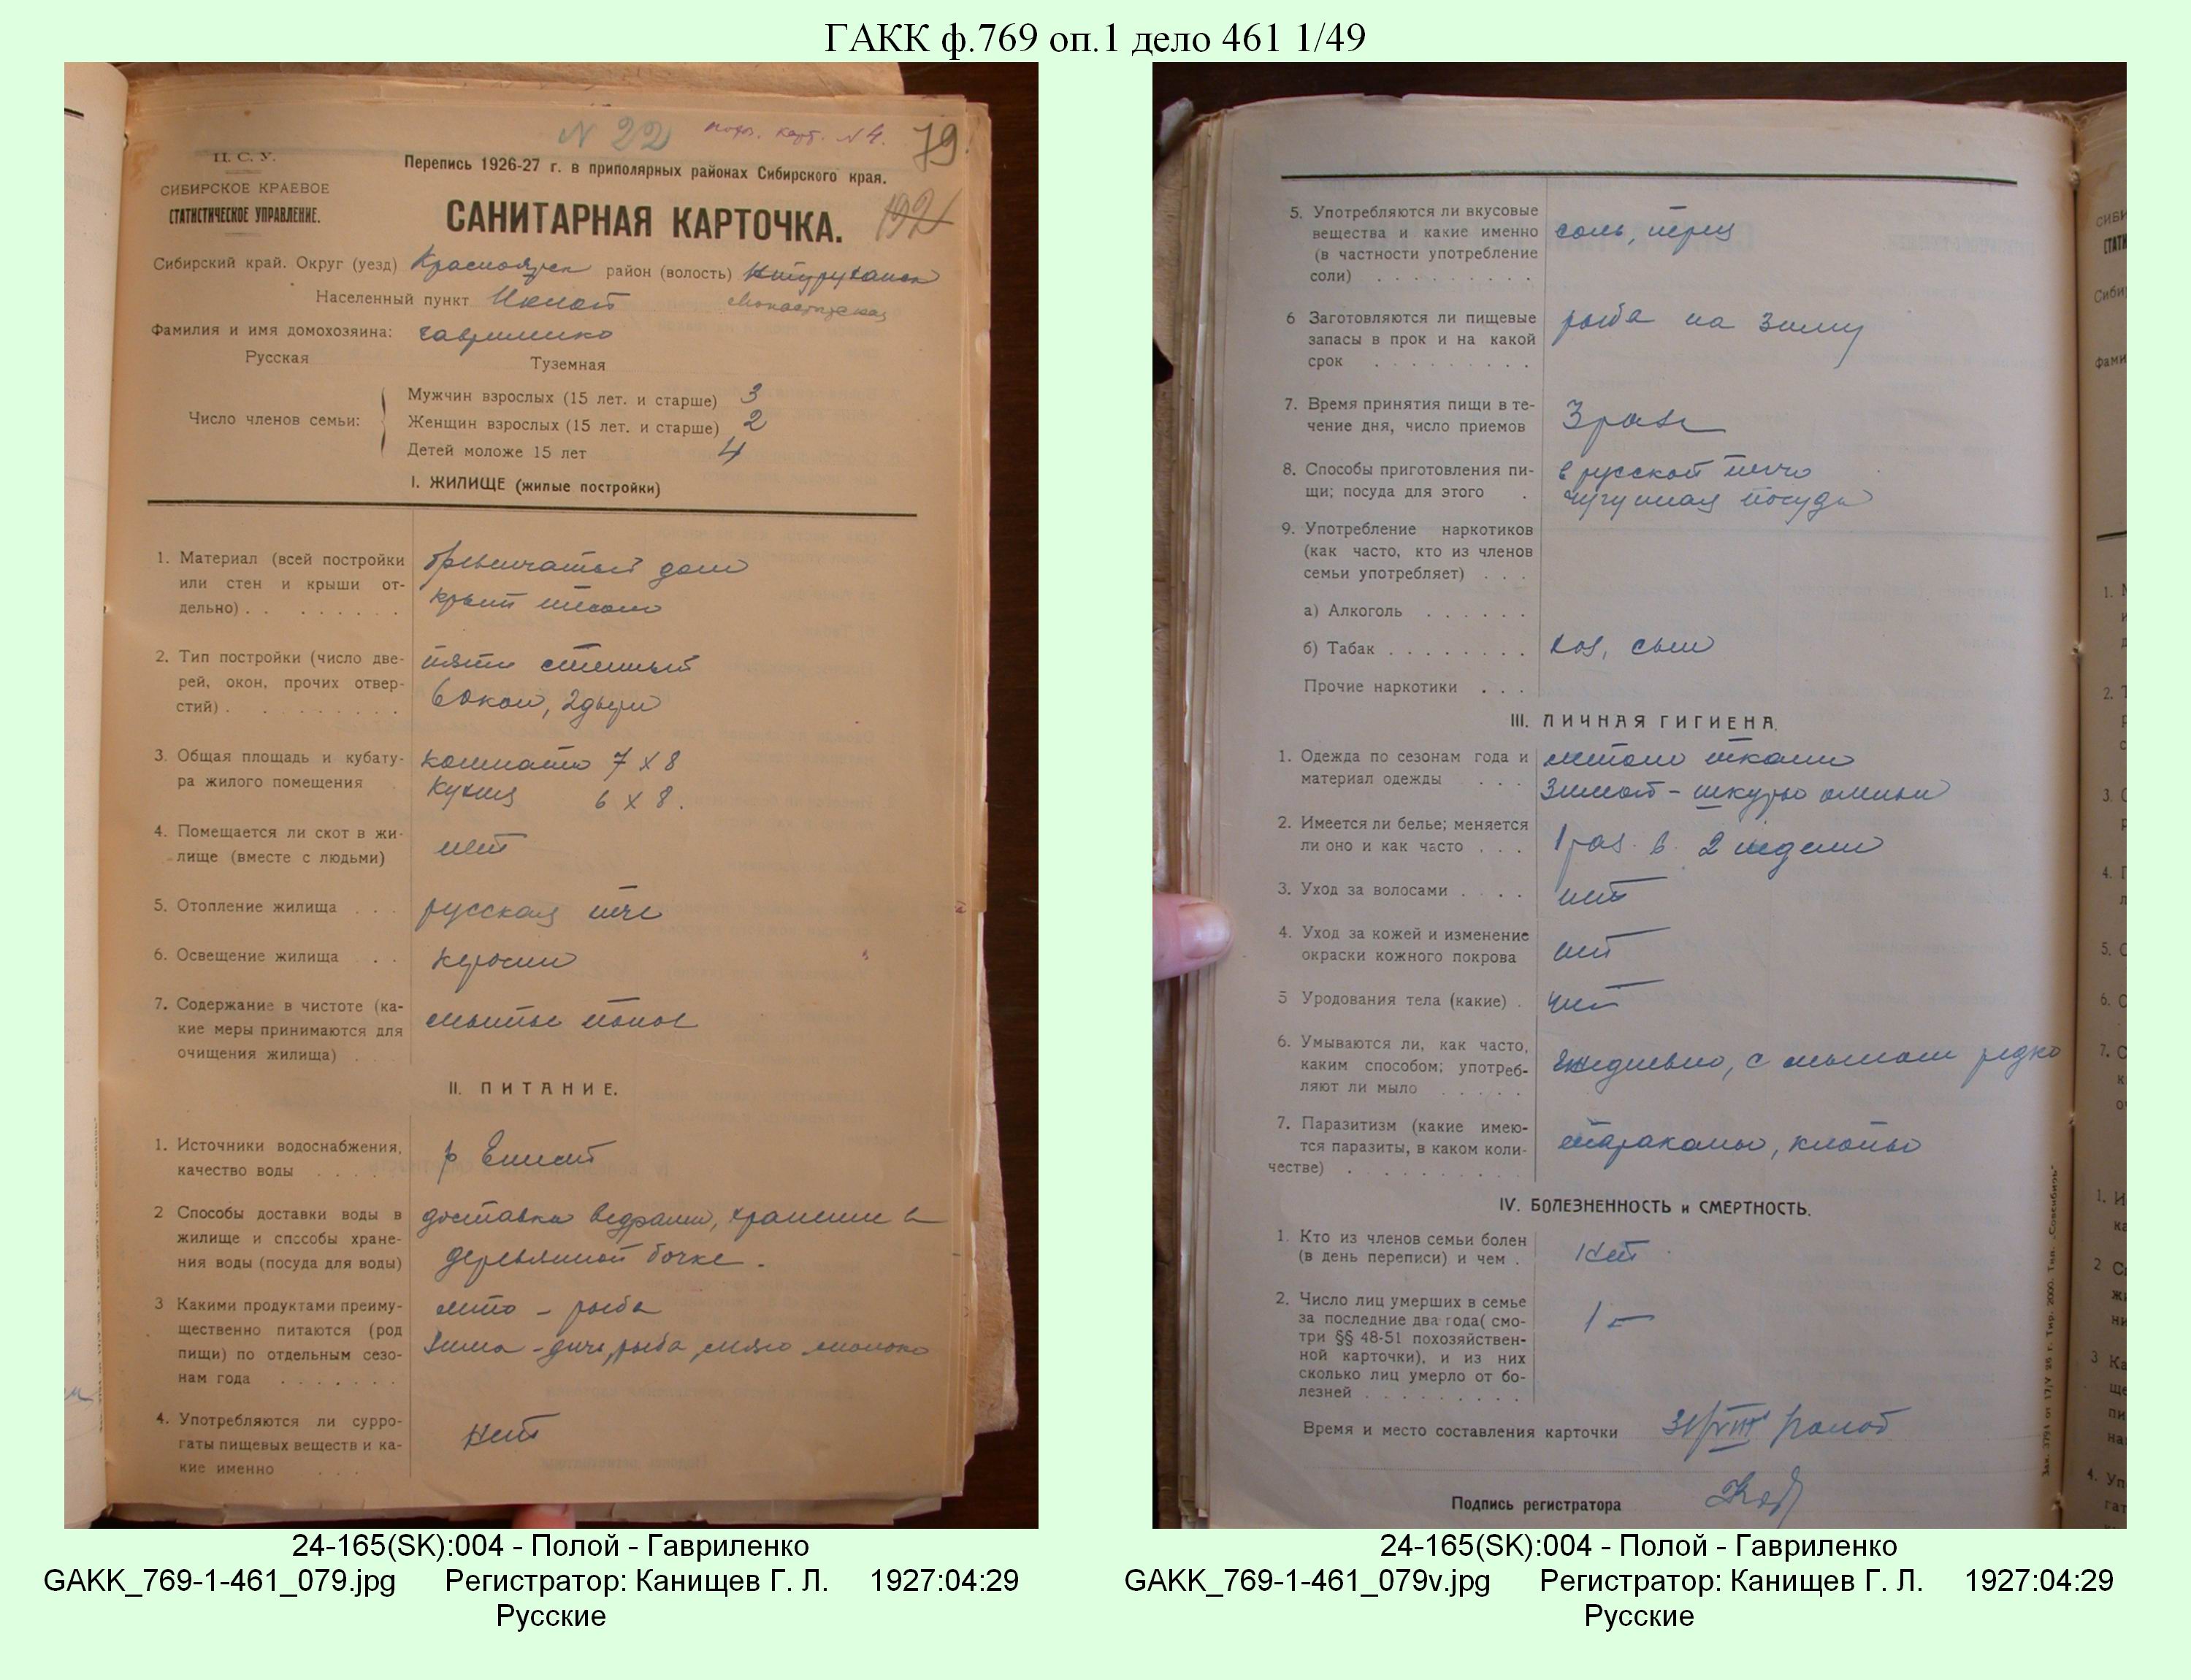 ГАКК ф.769 оп.1 дело 461 1/49
N 22 карт. N 4. 79
Ц. С. У.
СИБИРСКОЕ КРАЕВОЕ
СТАТИСТИЧЕСКОЕ УПРАВЛЕНИЕ.
Перепись 1926-27 г. в приполярных районах Сибирского края.
САНИТАРНАЯ КАРТОЧКА.
Сибирский край. Округ (уезд) Красноярск район (волость) Н Туруханск
Населенный пункт
Фамилия и имя домохозяина: Гавриленко
Русская Туземная
Число членов семьи:
Мужчин взрослых (15 лет. и старше) 3
Женщин взрослых (15 лет. и старше) 2
Детей моложе 15 лет 4
I. ЖИЛИЩЕ (жилые постройки)
1. Материал (всей постройки
или стен и крыши от-
дельно) . . . . . . . .
бревенчатый дом
крыт тесом
2. Тип постройки (число две-
рей, окон, прочих отвер-
стий) . . . . . . . .
пяти стенный
6 окон, 2 двери
3. Общая площадь и кубату-
ра жилого помещения
комната 7 х 8
кухня 6 х 8.
4. Помещается ли скот в жи-
лище (вместе с людьми)
нет
5. Отопление жилища . . . русская печь
6. Освещение жилища . . керосин
7. Содержание в чистоте (ка-
кие меры принимаются для
очищения жилища) . . .
мытье полов
II. ПИТАНИЕ.
1. Источники водоснабжения,
качество воды . . . .
р Енисей
2 Способы доставки воды в
жилище и способы хране-
ния воды (посуда для воды)
доставка ведрами, хранение в
деревянной бочке.
3 Какими продуктами преиму-
щественно питаются (род
пищи) по отдельным сезо-
нам года . . . . . . .
лето - рыба
зима - дичь, рыба, мясо молоко
4. Употребляются ли сурро-
гаты пищевых веществ и ка-
кие именно . . .
нет
24-165(SK):004 - Полой - Гавриленко
GAKK_769-1-461_079.jpg Регистратор: Канищев Г. Л. 1927:04:29
Русские
5. Употребляются ли вкусовые
вещества и какие именно
(в частности употребление
соли) . . . . . . . . .
соль, перец
6 Заготовляются ли пищевые
запасы в прок и на какой
срок . . . . . . . . .
рыба на зиму
7. Время принятия пищи в те-
чение дня, число приемов
3 раза
8. Способы приготовления пи-
щи; посуда для этого .
в русской печи
чугунная посуда
9. Употребление наркотиков
(как часто, кто из членов
семьи употребляет) . . .
а) Алкоголь . . . . . .
б) Табак . . . . . . . . хоз, сын
Прочие наркотики . . .
III. ЛИЧНАЯ ГИГИЕНА.
1. Одежда по сезонам года и
материал одежды . . .
летом ткани
зимой - шкуры оленьи
2. Имеется ли белье; меняется
ли оно и как часто . . .
1 раз в 2 недели
3. Уход за волосами . . . . нет
4. Уход за кожей и изменение
окраски кожного покрова
нет
5 Уродования тела (какие) . нет
6. Умываются ли, как часто,
каким способом; употреб-
ляют ли мыло . . . . .
ежедневно, с мылом редко
7. Паразитизм (какие имею-
тся паразиты, в каком коли-
честве) . . . . . . . .
тараканы, клопы
IV. БОЛЕЗНЕННОСТЬ и СМЕРТНОСТЬ.
1. Кто из членов семьи болен
(в день переписи) и чем .
нет
2. Число лиц умерших в семье
за последние два года( смо-
три §§ 48-51 похозяйствен-
ной карточки), и из них
сколько лиц умерло от бо-
лезней . . . . . . . . .
1
Время и место составления карточки
Подпись регистратора
24-165(SK):004 - Полой - Гавриленко
GAKK_769-1-461_079v.jpg Регистратор: Канищев Г. Л. 1927:04:29
Русские